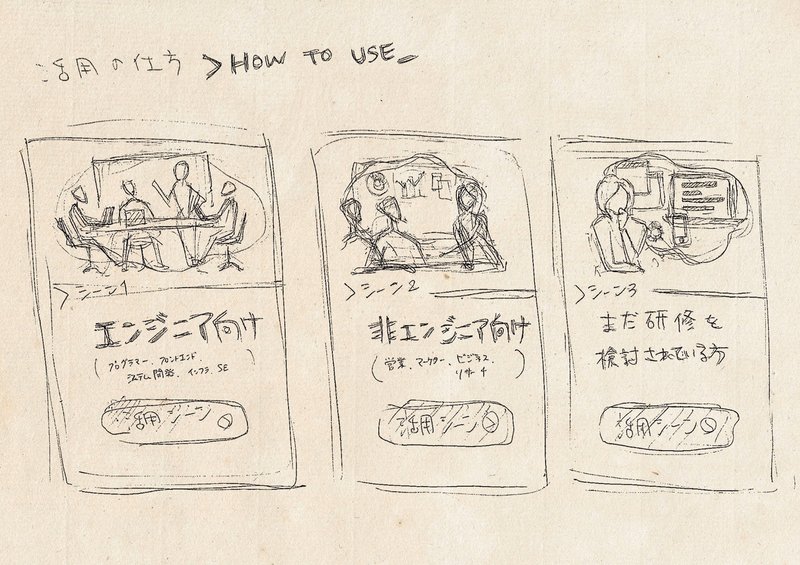 活用の仕方 >HOW TO USE_
>シーン1
エンジニア向け
(プログラマー、フロントエンド、
システム開発、インフラ、SE)
活用シーン
>シーン2
非エンジニア向け
(営業、マーケター、ビジネス、
リサーチ)
活用シーン
>シーン3
まだ研修を
検討されている方
活用シーン